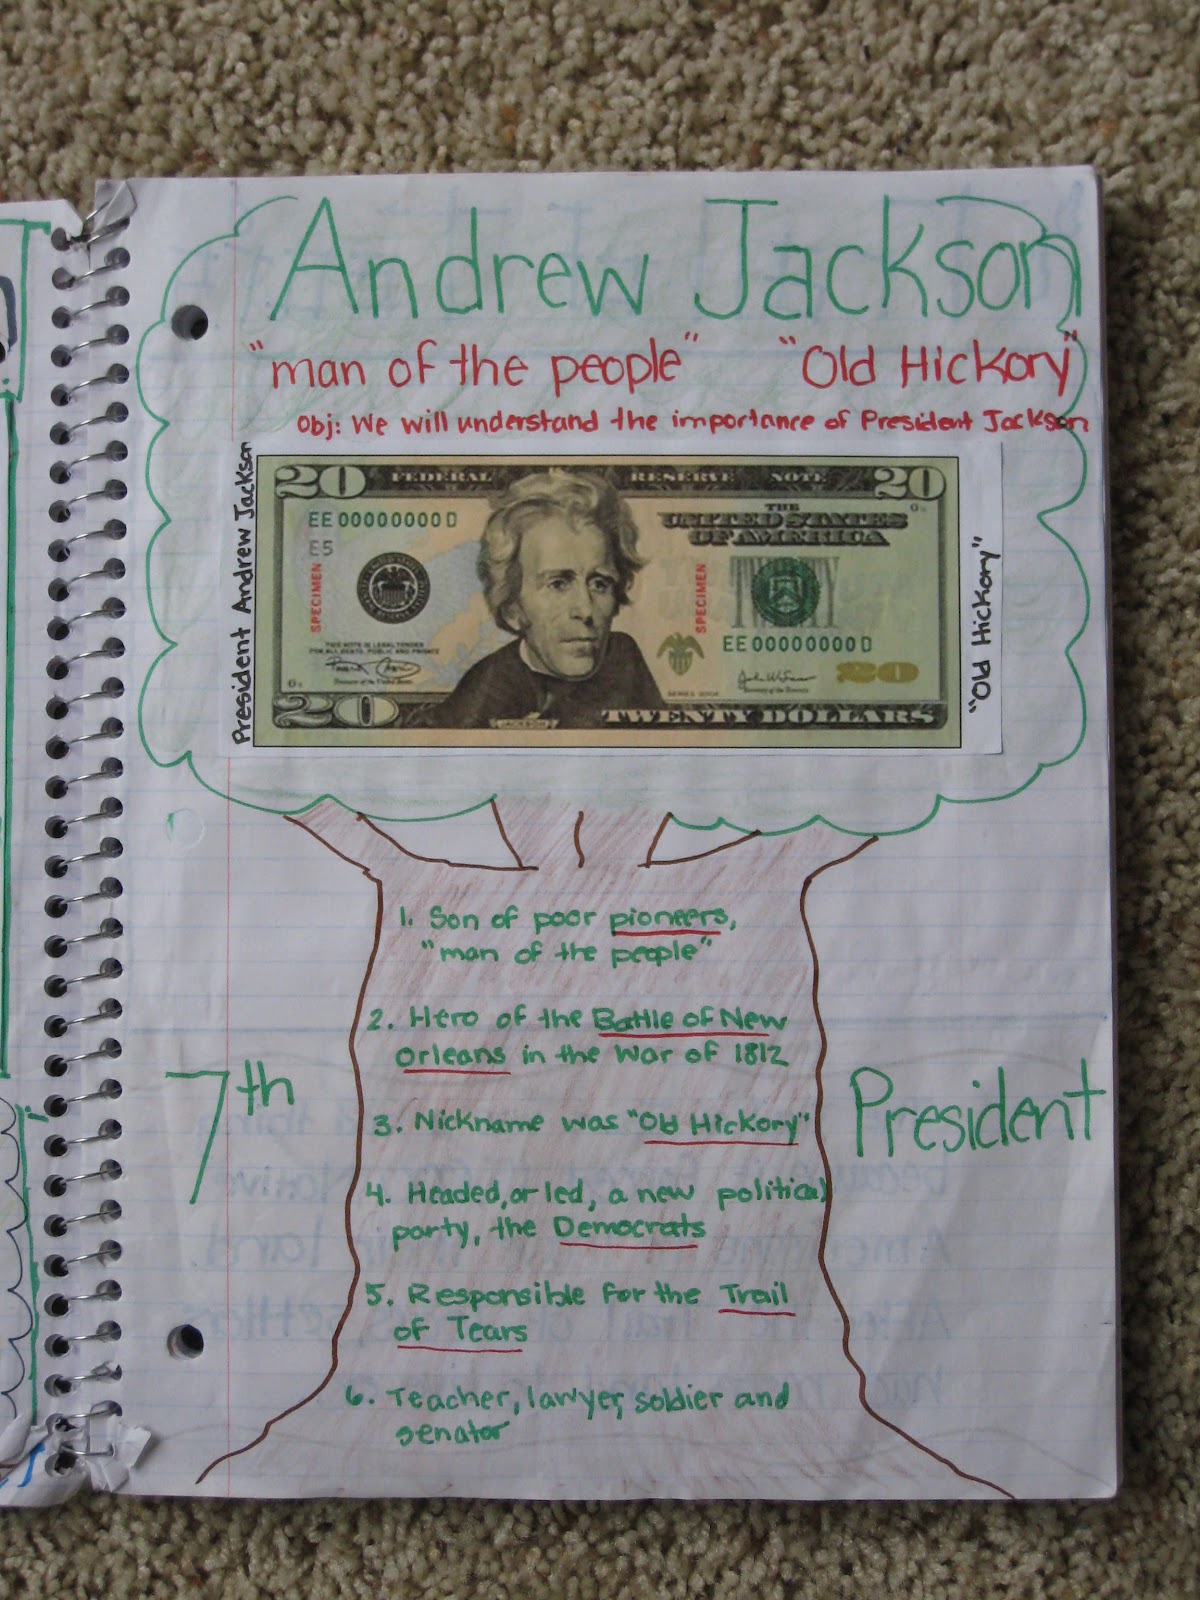 Andrew Jackson
"man of the people" "Old Hickory"
Obj: We will understand the importance of President Jackson
President Andrew Jackson
20 FEDERAL RESERVE NOTE 20
THE
UNITED STATES
OF AMERICA
EE 00000000 D
E5
SPECIMEN
SPECIMEN
THIS NOTE IS LEGAL TENDER
FOR ALL DEBTS, PUBLIC AND PRIVATE
EE 00000000 D
20
Treasurer of the United States
SERIES 2004
Secretary of the Treasury
20 JACKSON TWENTY DOLLARS
"Old Hickory"
1. Son of poor pioneers,
"man of the people"
2. Hero of the Battle of New
Orleans in the War of 1812
7th
President
3. Nickname was "Old Hickory"
4. Headed, or led, a new political
party, the Democrats
5. Responsible for the Trail
of Tears
6. Teacher, lawyer, soldier and
senator